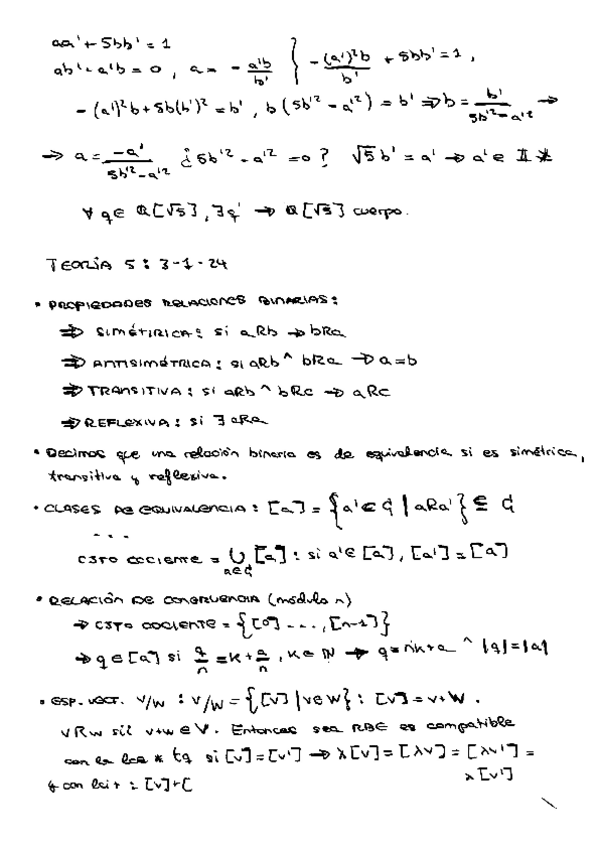 aa' + 5bb' = 1
ab' + a'b = 0 , a = - a'b/b' } - (a')²b/b' + 5bb' = 1 ,
- (a')²b + 5b(b')² = b' , b(5b'² - a'²) = b' ⇒ b = b'/(5b'² - a'²) →
→ a = -a'/(5b'² - a'²) ¿5b'² - a'² = 0? √5 b' = a' → a' ∈ 𝕀 *
∀ q ∈ Q[√5], ∃ q' → Q[√5] cuerpo.
TEORÍA 5 : 3-1-24
• PROPIEDADES RELACIONES BINARIAS:
⇒ SIMÉTRICA: si aRb → bRa
⇒ ANTISIMÉTRICA: si aRb ^ bRa → a=b
⇒ TRANSITIVA: si aRb ^ bRc → aRc
⇒ REFLEXIVA: si ∃ aRa
• Decimos que una relación binaria es de equivalencia si es simétrica,
transitiva y reflexiva.
• CLASES DE EQUIVALENCIA: [a] = {a' ∈ G | aRa'} ⊆ G
...
CJTO COCIENTE = ∪ a∈G [a] : si a' ∈ [a], [a'] = [a]
• RELACIÓN DE CONGRUENCIA (módulo n)
→ CJTO COCIENTE = {[0] ..., [n-1]}
→ q ∈ [a] si q/n = k + a/n , k ∈ N → q = nk + a ^ |q| = |a|
• ESP. VECT. V/W : V/W = {[v] | v ∈ W} : [v] = v + W .
vRw sii v+w ∈ V. Entonces sea RBE es compatible
con la lce * tq si [v] = [v'] → λ[v] = [λv] = [λv'] =
λ[v']
y con lci + : [v]+[